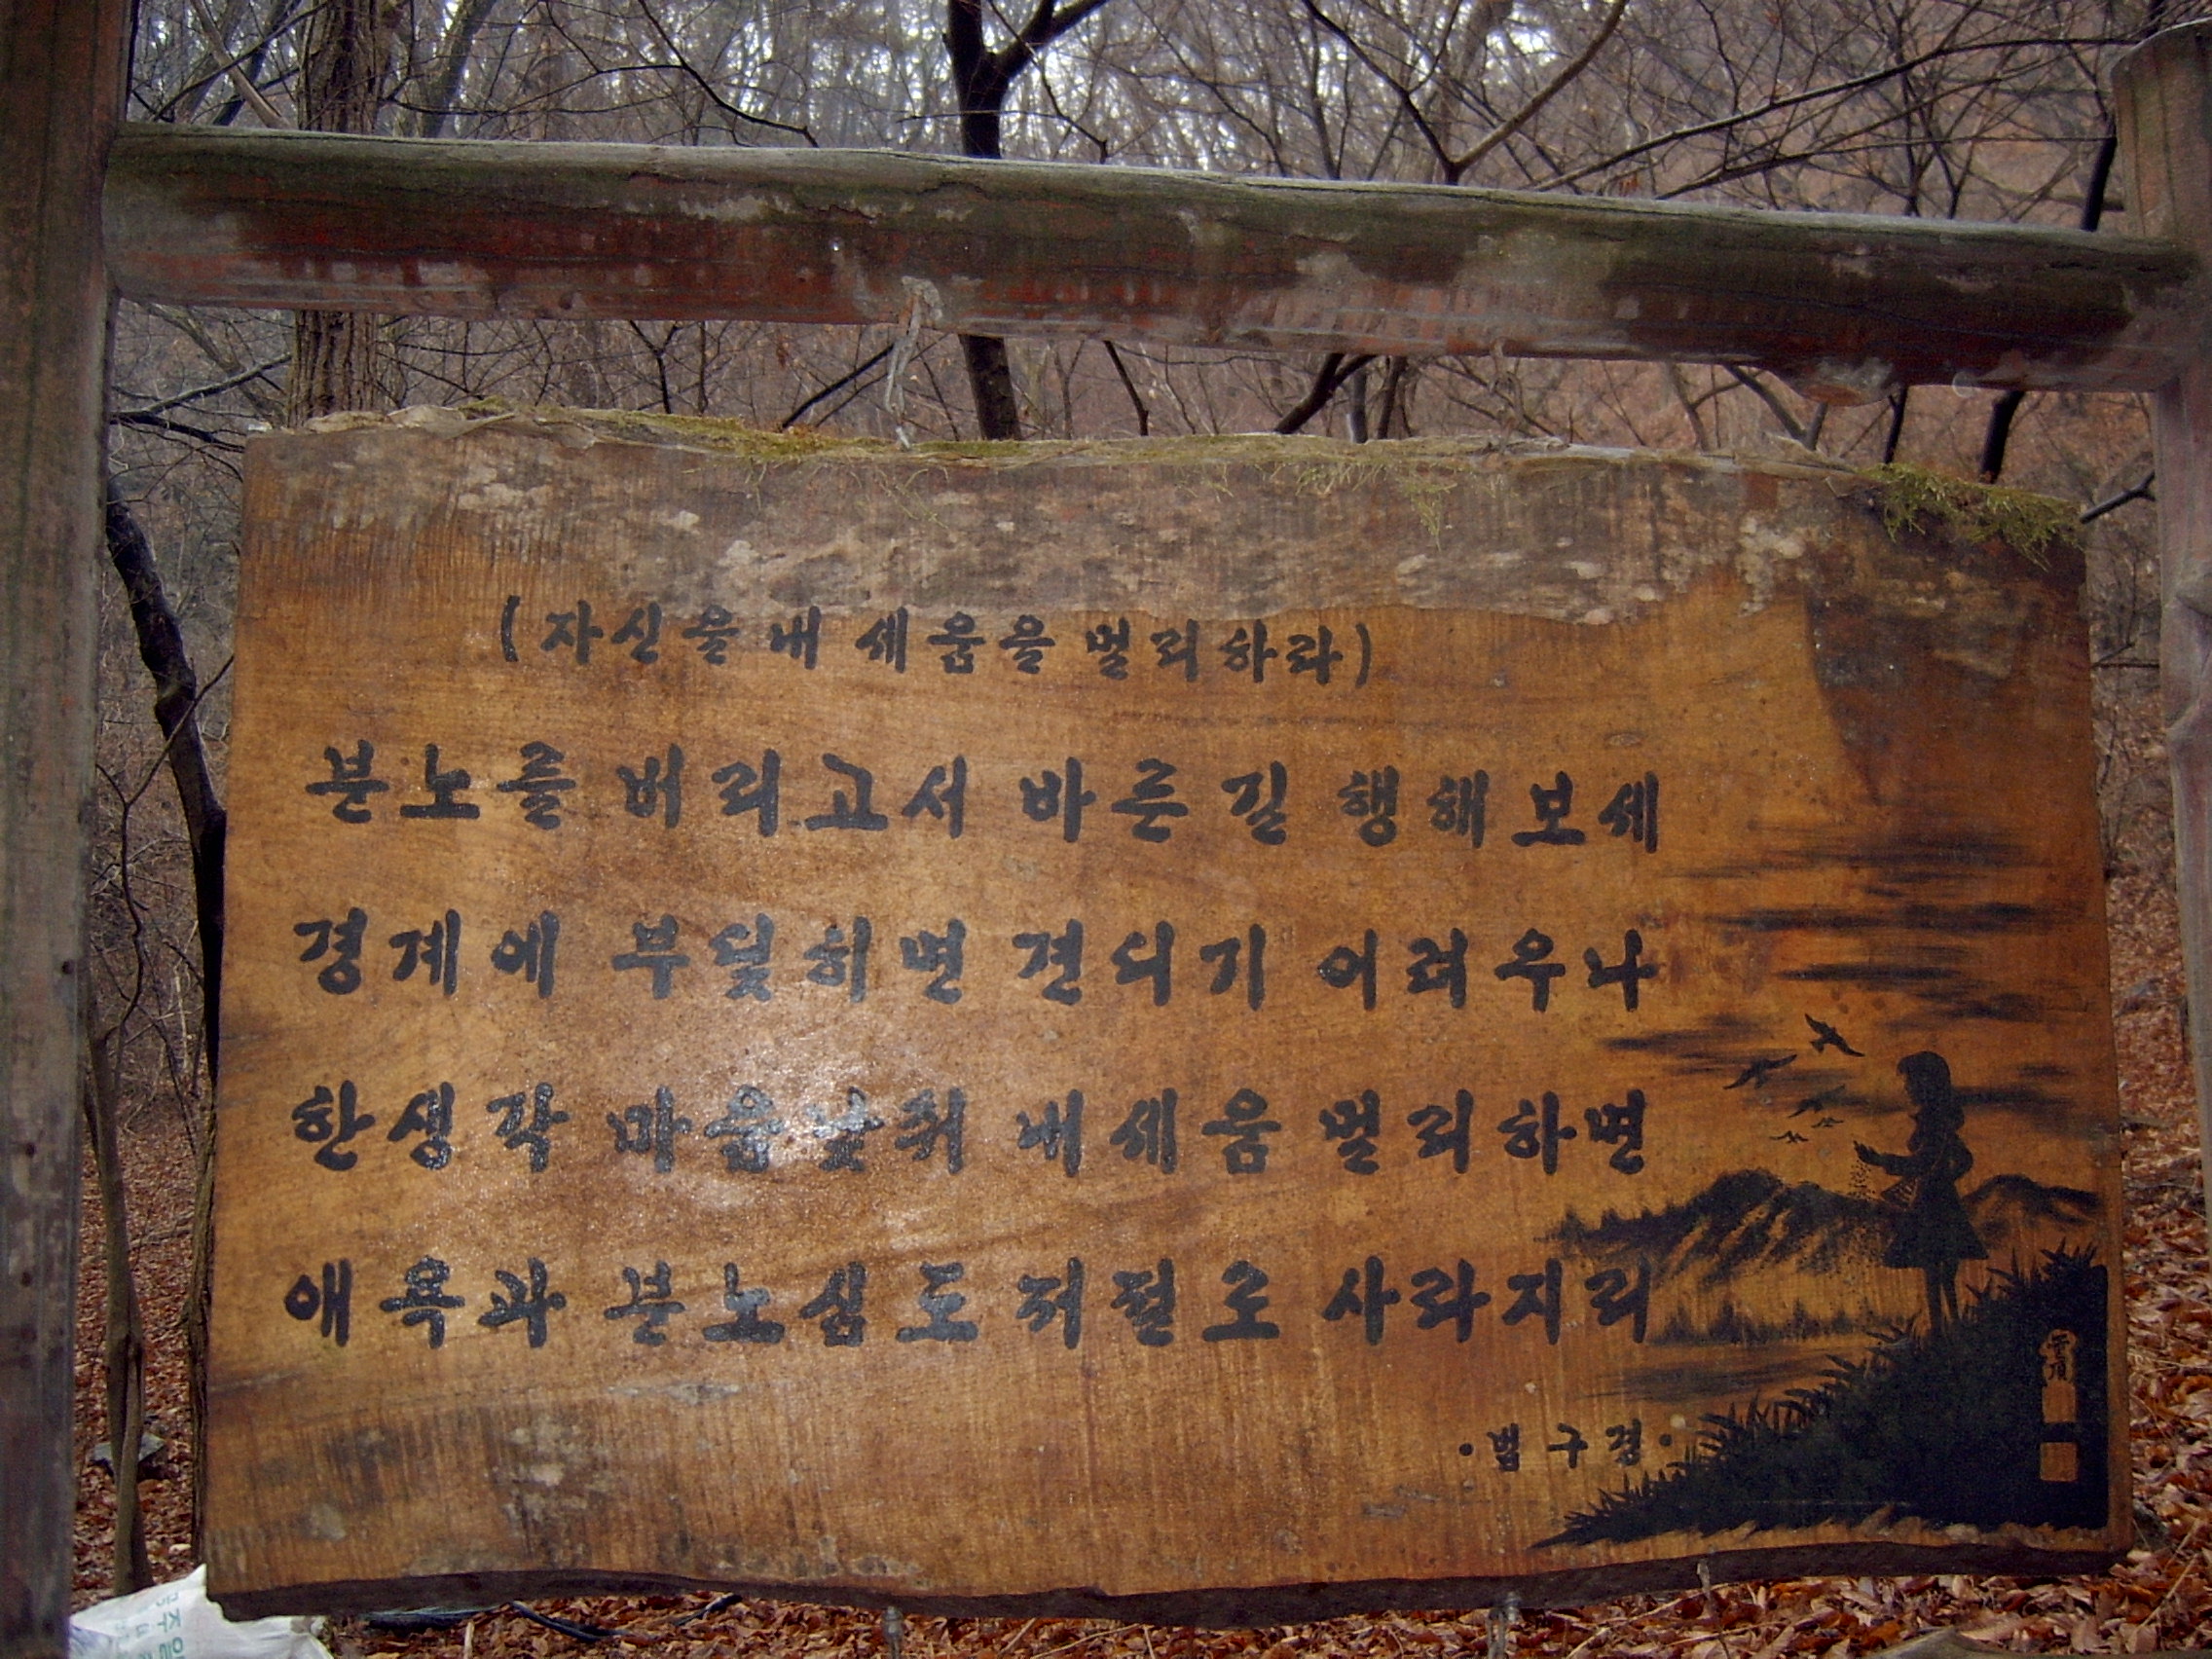 (자신을 내 세움을 멀리하라)
분노를 버리고서 바른길 행해보세
경계에 부딪히면 견디기 어려우나
한생각 마음낮춰 내세움 멀리하면
애욕과 분노심도 저절로 사라지리
·법구경·